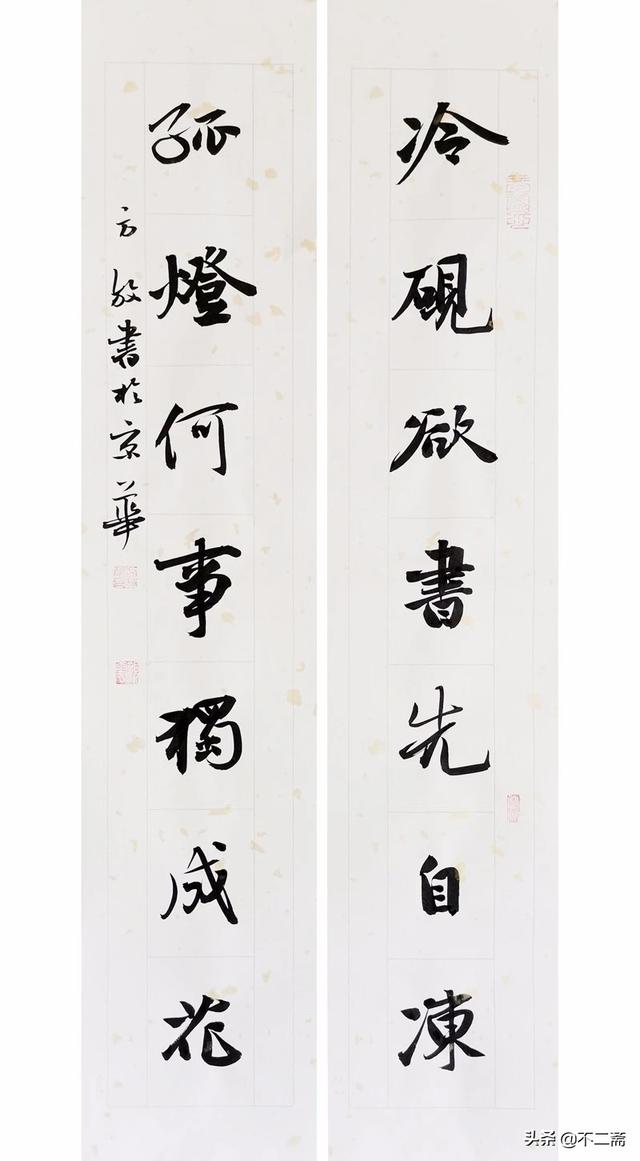 冷硯欲書先自凍
孤燈何事獨成花
方放書於京華
头条 @不二斋